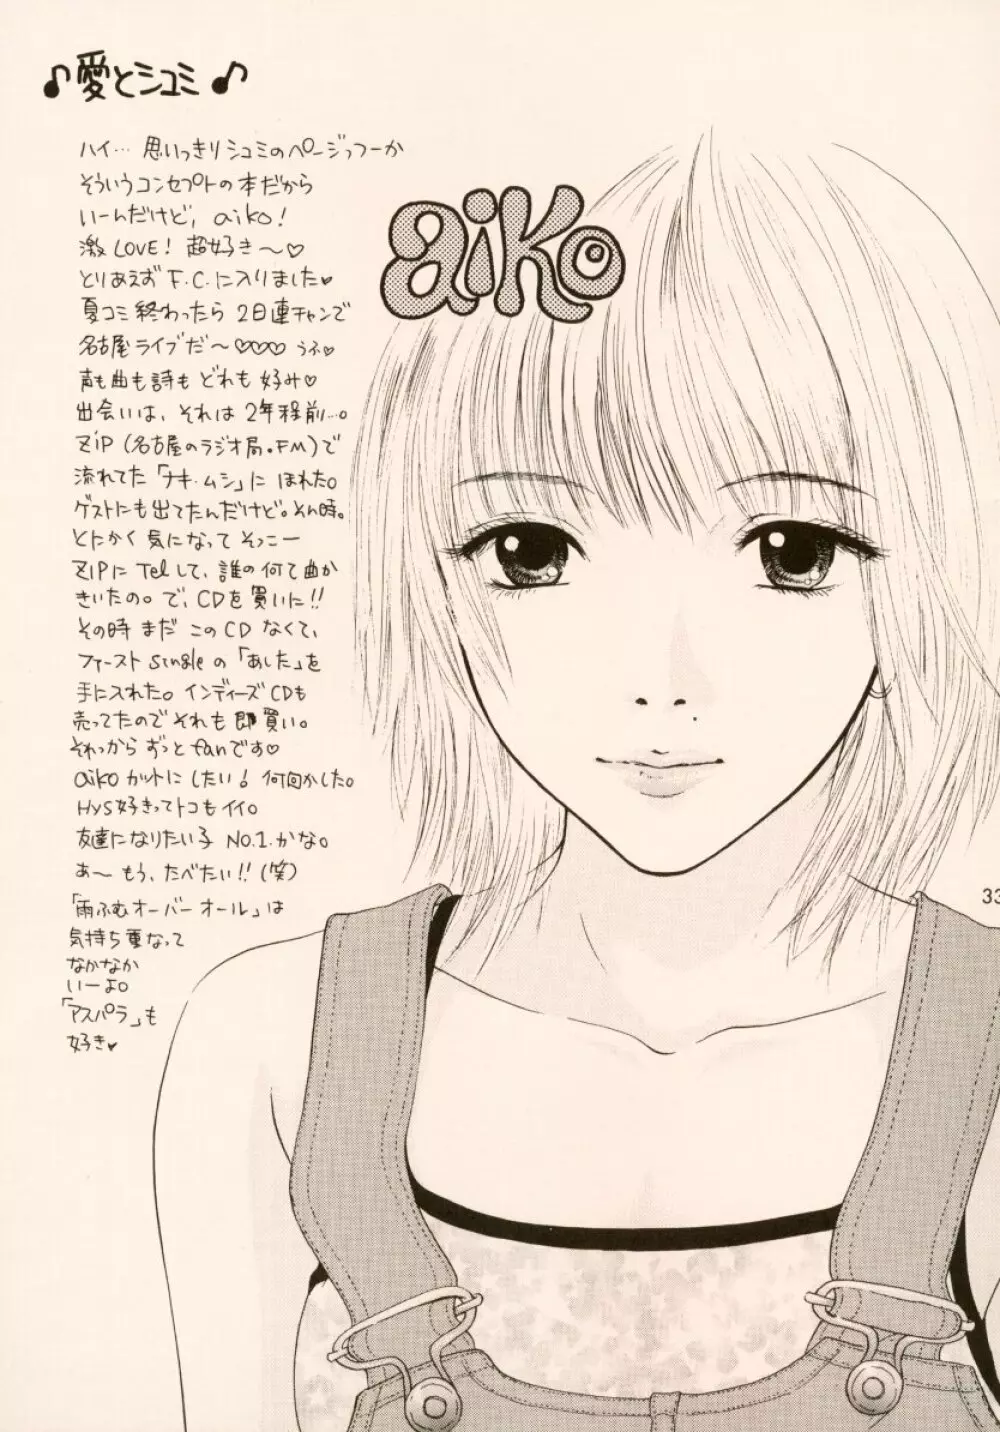 ♪愛とシュミ♪
ハイ… 思いっきりシュミのページっつーか
そういうコンセプトの本だから
いーんだけど, aiko!
激LOVE! 超好き〜♡
とりあえず F.C.に入りました♥
夏コミ終わったら 2日連チャンで
名古屋ライブだ〜♡♡♡ うふ♥
声も曲も詩も どれも 好み♥
出会いは、それは 2年程前…。
ZiP (名古屋のラジオ局。FM)で
流れてた「ナキ・ムシ」に ほれた。
ゲストにも出てたんだけど。その時。
とにかく 気になって そっこー
ZIPに Telして、誰の何て曲か
きいたの。で、CDを買いに!!
その時 まだ このCD なくて、
ファースト Singleの「あした」を
手に入れた。インディーズCDも
売ってたので それも 即買い。
それっから ずっと fanです♥
aikoカットにしたい! 何回かした。
HYS好きってトコもイイ。
友達になりたい子 NO.1.かな。
あ〜 もう、たべたい!!(笑)
「雨ふむオーバーオール」は
気持ち重なって
なかなか
いーよ。
「アスパラ」も
好き♥
aiko
33